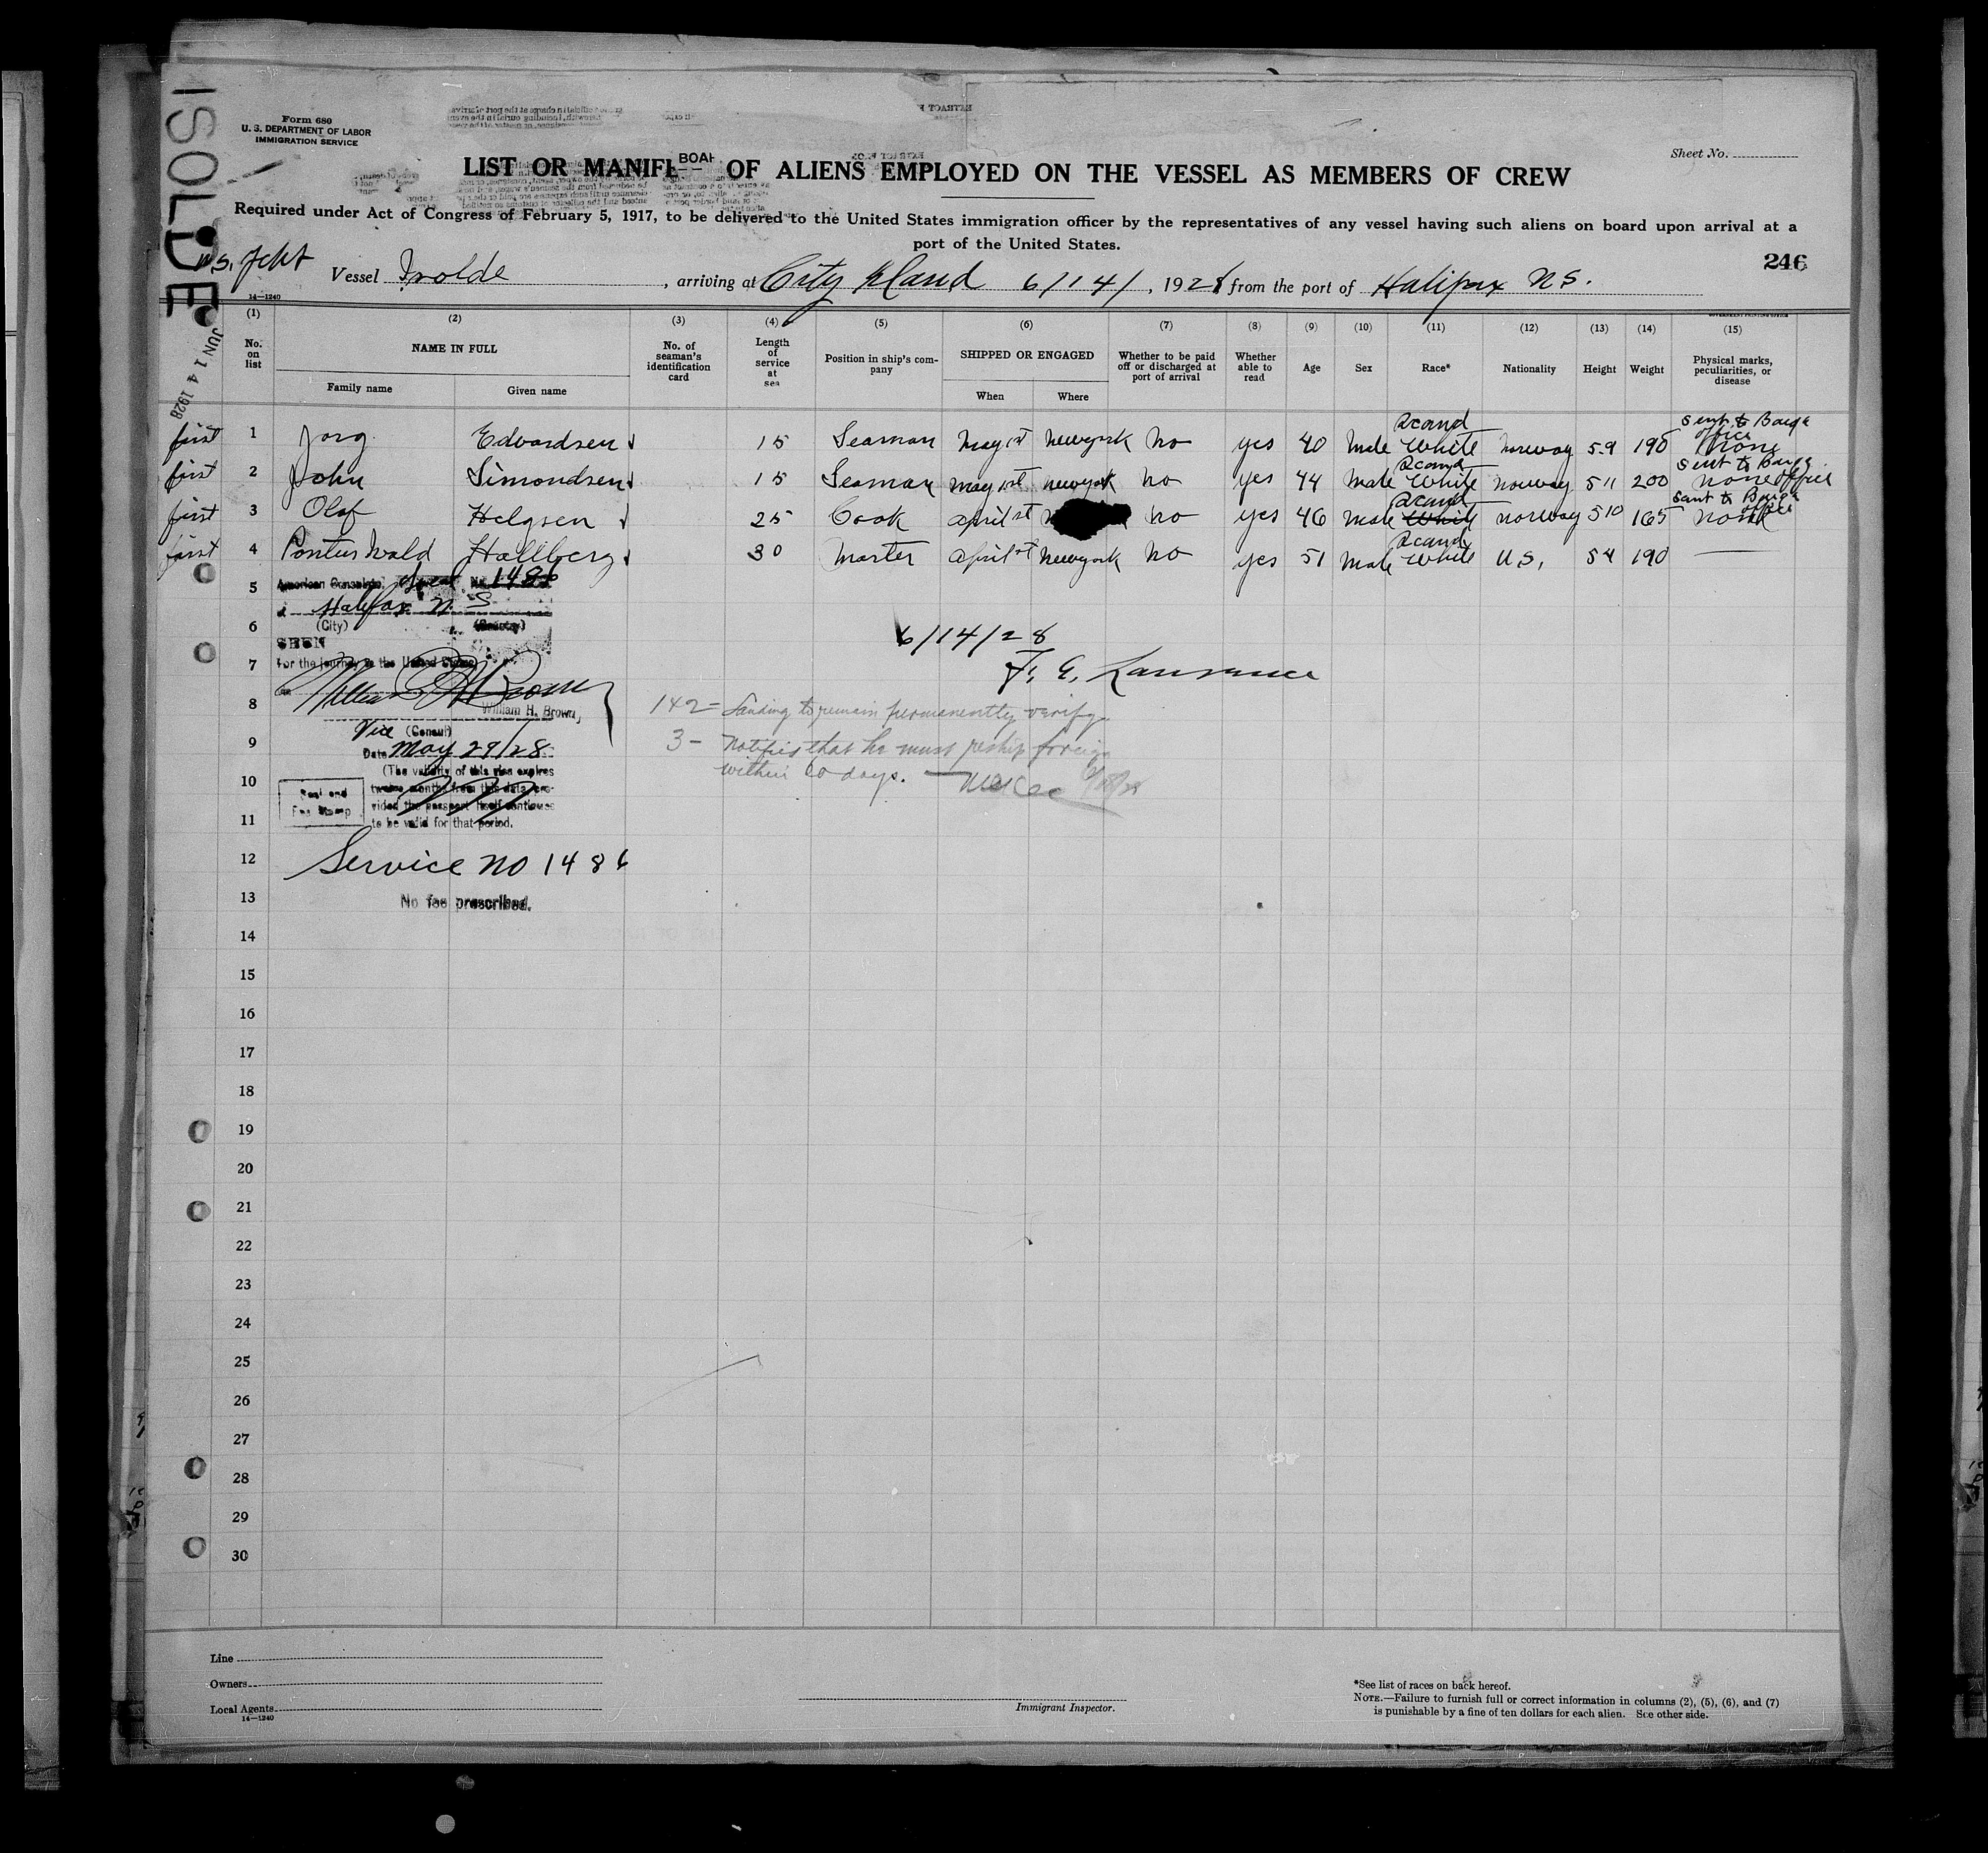 ISOLDE
JUN 14 1928
Form 680
U. S. DEPARTMENT OF LABOR
IMMIGRATION SERVICE
Sheet No.
LIST OR MANIFE BOAR OF ALIENS EMPLOYED ON THE VESSEL AS MEMBERS OF CREW
Required under Act of Congress of February 5, 1917, to be delivered to the United States immigration officer by the representatives of any vessel having such aliens on board upon arrival at a
port of the United States.
246
Vessel Isolde, arriving at City Island 6/14/, 1928 from the port of Halifax N.S.
14—1240
(1) (2) (3) (4) (5) (6) (7) (8) (9) (10) (11) (12) (13) (14) (15)
No. on list
NAME IN FULL
Family name
Given name
No. of seaman's identification card
Length of service at sea
Position in ship's company
SHIPPED OR ENGAGED
When
Where
Whether to be paid off or discharged at port of arrival
Whether able to read
Age
Sex
Race*
Nationality
Height
Weight
Physical marks, peculiarities, or disease
Scand Sent to Barge office
first 1 Jorg Edvardsen 15 Seaman May 1st newyork no yes 40 male White norway 5-9 190 none
Scand Sent to Barge office
first 2 John Simondsen 15 Seaman may 1st newyork no yes 44 male White norway 5 11 200 none
Scand Sent to Barge office
first 3 Olaf Helgsen 25 Cook april 1st no yes 46 male White norway 5 10 165 none
Scand
first 4 Pontus Wald Hallberg 30 master april 1st newyork no yes 51 male White U.S. 5 4 190
5 American Consulate No. 1486
Halifax N.S
6 (City) (Country)
SEEN
6/14/28
7 For the journey to the United States
F. E. Lawrence
William H. Brown
8 William H. Brown,
142 = Landing to remain permanently verify
Vice (Consul)
9 Date May 29/28
3 - Notified that he must reship foreign
within 60 days.
(The validity of this visa expires
10 twelve months from this date, provided
the passport itself continues
11 to be valid for that period.
Seal and
Fee Stamp
12 Service no 1486
13 No fee prescribed.
14
15
16
17
18
19
20
21
22
23
24
25
26
27
28
29
30
Line
Owners
Local Agents
14—1240
Immigrant Inspector.
*See list of races on back hereof.
NOTE.—Failure to furnish full or correct information in columns (2), (5), (6), and (7)
is punishable by a fine of ten dollars for each alien. See other side.